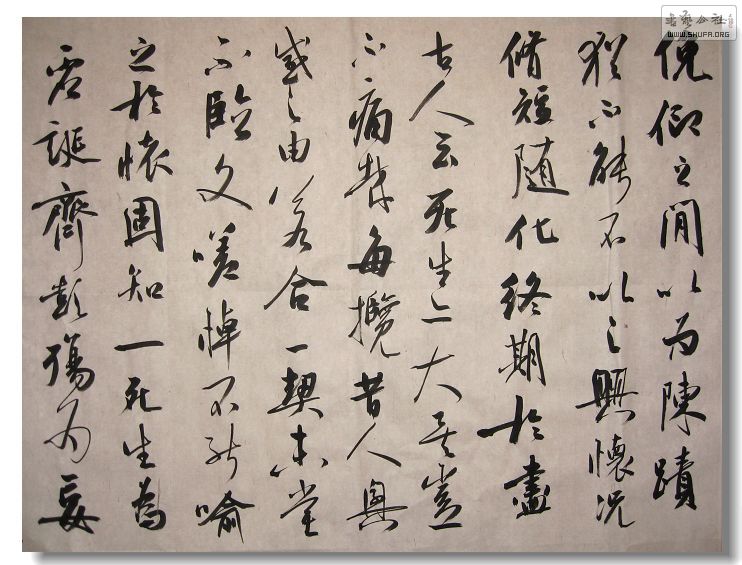 俛仰之閒以為陳蹟
猶不能不以之興懷況
脩短随化終期於盡
古人云死生亦大矣豈
不痛哉每攬昔人興
感之由若合一契未嘗
不臨文嗟悼不能喻
之於懷固知一死生為
虛誕齊彭殤為妄
书艺公社
WWW.SHUFA.ORG